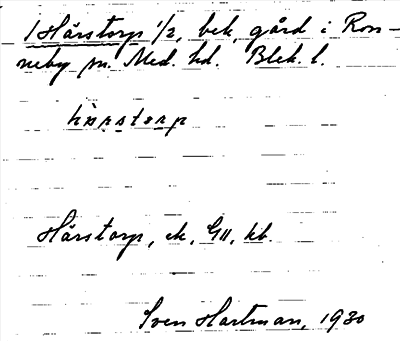 1 Hårstorp 1/2, bek, gård i Ron-
neby sn. Med. hd. Blek. l.
Hårstorp, ek, GII, kb.
Sven Hartman, 1930